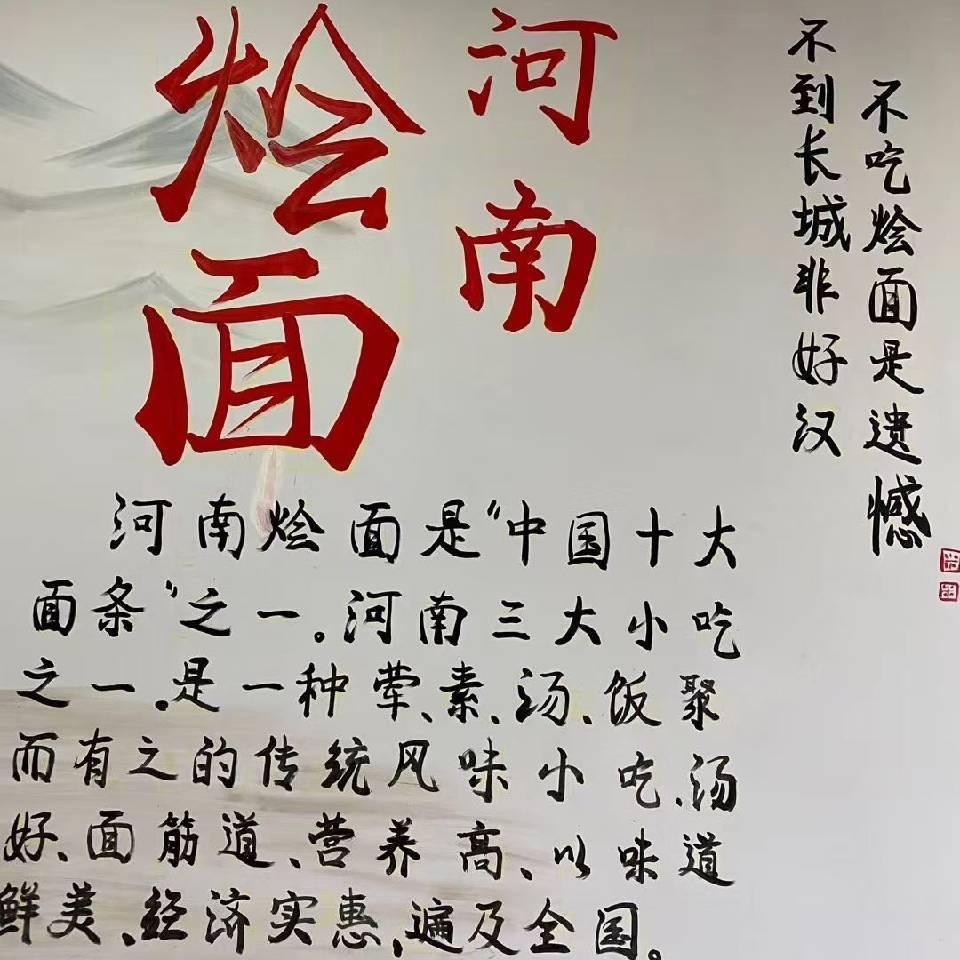 不吃烩面是遗憾
不到长城非好汉
河南
烩面
河南烩面是“中国十大
面条”之一。河南三大小吃
之一。是一种荤、素、汤、饭聚
而有之的传统风味小吃、汤
好、面筋道、营养高、以味道
鲜美、经济实惠,遍及全国。